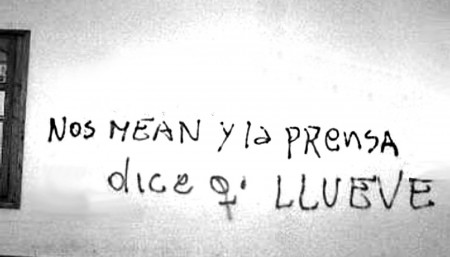 NOS MEAN Y la PRENSA
dice q' LLUEVE